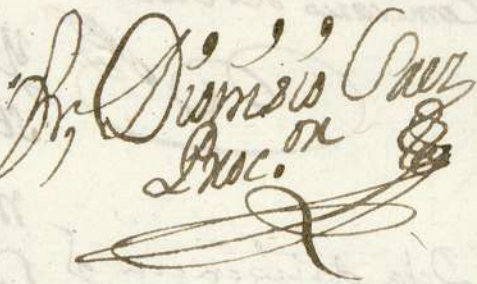 Fr, Dionisio Saez
Proc.on